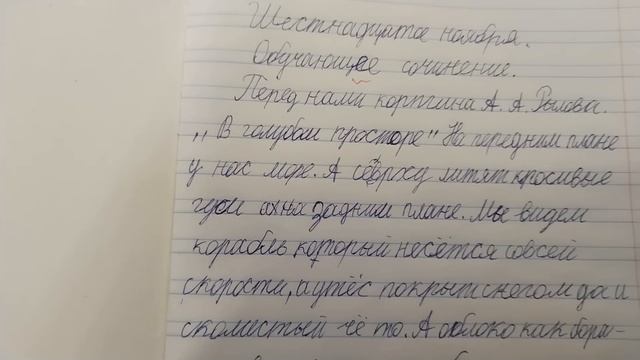 Шестнадцатое ноября.
Обучающее сочинение.
Перед нами картина А. А. Рылова.
,, В голубом просторе" На передним плане
у нас море. А сверху литят красивые
гуси ахна задним плане. Мы видем
корабль который несётся совсей
скорости, а утёс покрыт снегом да и
скоместый чё то. А облоко как бара-